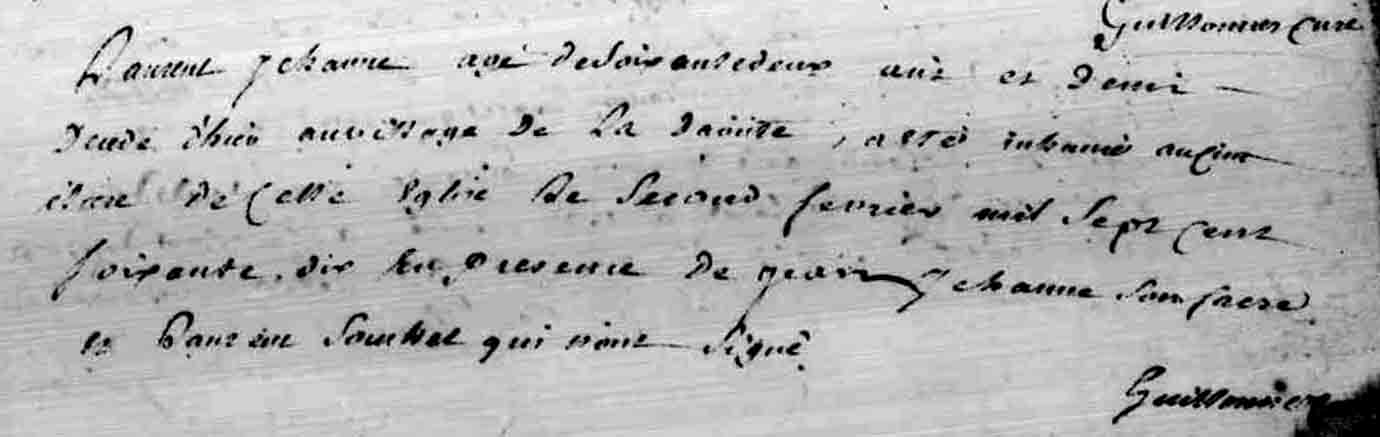 Guillonnier curé
Laurent jehanne agé desoixantedeux ans et demi
decedé d'hier auvillage de La , a esté inhumé aucime
tiere de Cette Eglise Le Second fevrier mil Sept Cent
soixante. dix En presence de jean jehanne Son frere
et Laurent qui n'ont Signé
Guillonnier